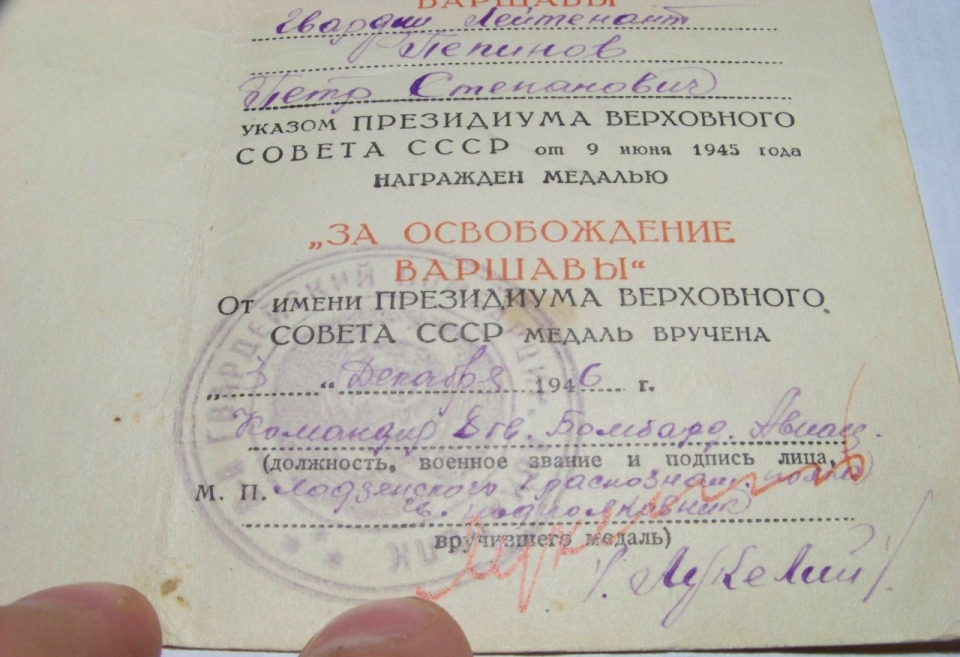 ВАРШАВЫ
Гвардии Лейтенант
Пепинов
Петр Степанович
УКАЗОМ ПРЕЗИДИУМА ВЕРХОВНОГО
СОВЕТА СССР от 9 июня 1945 года
НАГРАЖДЕН МЕДАЛЬЮ
„ЗА ОСВОБОЖДЕНИЕ
ВАРШАВЫ“
ОТ ИМЕНИ ПРЕЗИДИУМА ВЕРХОВНОГО
СОВЕТА СССР МЕДАЛЬ ВРУЧЕНА
„3“ Декабря 1946 г.
Командир 8 гв. Бомбард. Авиац.
(должность, военное звание и подпись лица,
М. П. Лодзянского Краснознам. полка
гв. подполковник
вручившего медаль)
ГВАРДЕЙСКИЙ